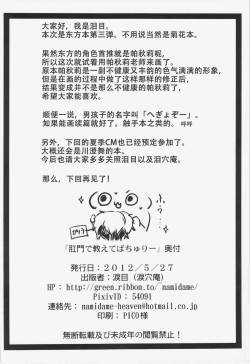 大家好，我是泪目。
本次是东方本第三弹。不用说当然是菊花本。
果然东方的角色首推就是帕秋莉呢，
所以这次就试着用帕秋莉老师来画了。
原本帕秋莉是一副不健康又丰韵的色气满满的形象，
但是在画的过程中做了这样那样的修正后，
结果变成并不是那么不健康的帕秋莉了，
希望大家能喜欢。
顺便一说，男孩子的名字叫「へぎょぞー」。
如果能画续篇就好了，触手本之类的。哼哼
另外，下回的夏季CM也已经预定参加了。
大概还会是川澄舞的本。
今后也请大家多多关照泪目以及泪穴庵。
那么，下回再见了!
「肛門で教えてぱちゅりー」奥付
発行日：２０１２／５／２７
出版者：涙目（涙穴庵）
HP：http://green.ribbon.to/~namidame/
PixivID：54091
連絡先：namidame-heaven@hotmail.co.jp
印刷：PICO様
無断転載及び未成年の閲覧禁止！